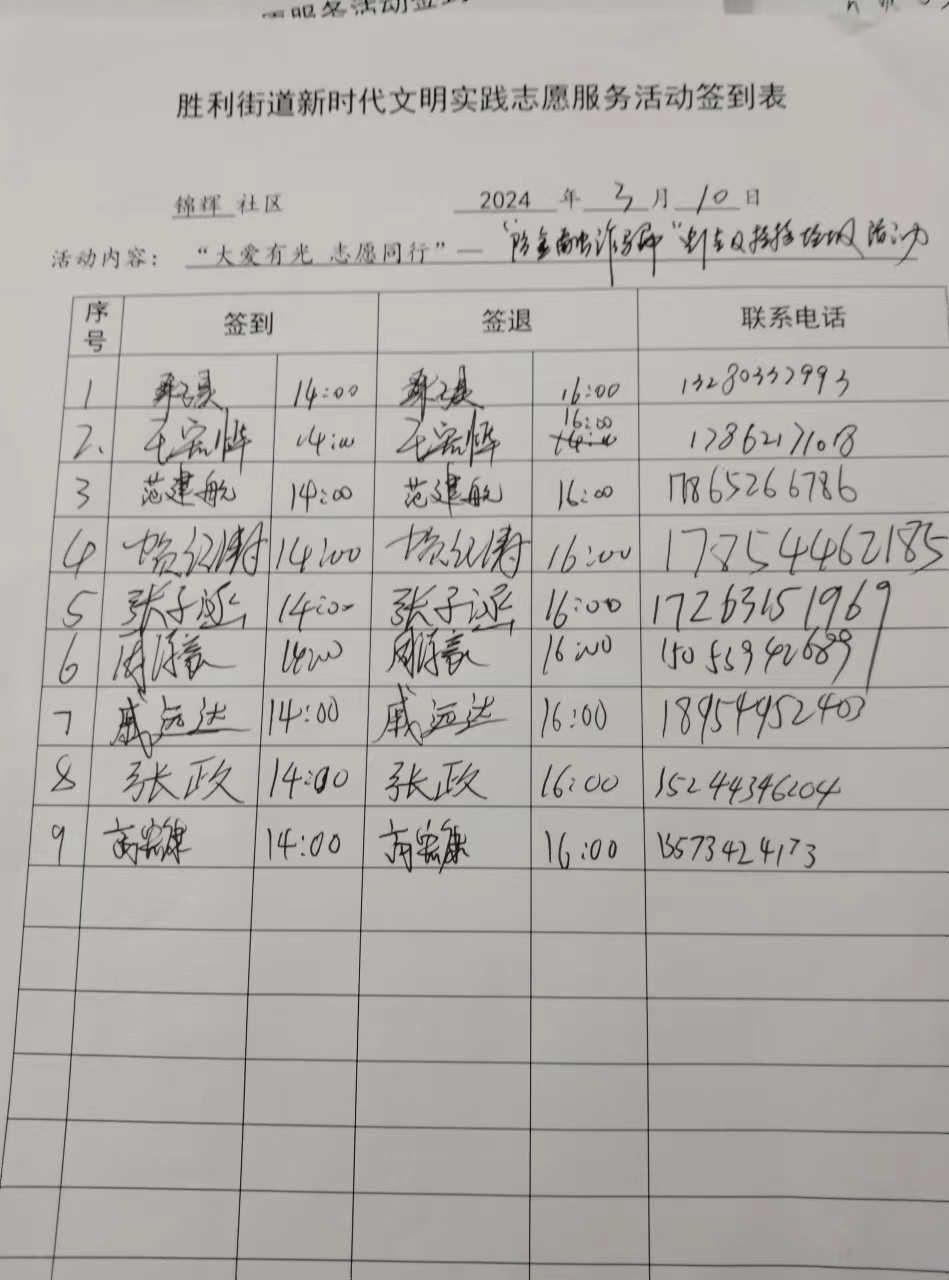 服务活动签到
胜利街道新时代文明实践志愿服务活动签到表
锦辉 社区 2024 年 3 月 10 日
活动内容： “大爱有光 志愿同行”— “防金融诈骗” 活动
序号 签到 签退 联系电话
1 14:00 16:00 13280332993
2、 王宏烨 14:00 王宏烨 16:00 14:00 17862171018
3 范建航 14:00 范建航 16:00 17865266786
4 14:00 16:00 17854462185
5 张子 14:00 张子 16:00 17263151969
6 周 14:00 周 16:00 15055942689
7 戚远达 14:00 戚远达 16:00 18954952403
8 张政 14:00 张政 16:00 15244346204
9 高宏康 14:00 高宏康 16:00 15573424173